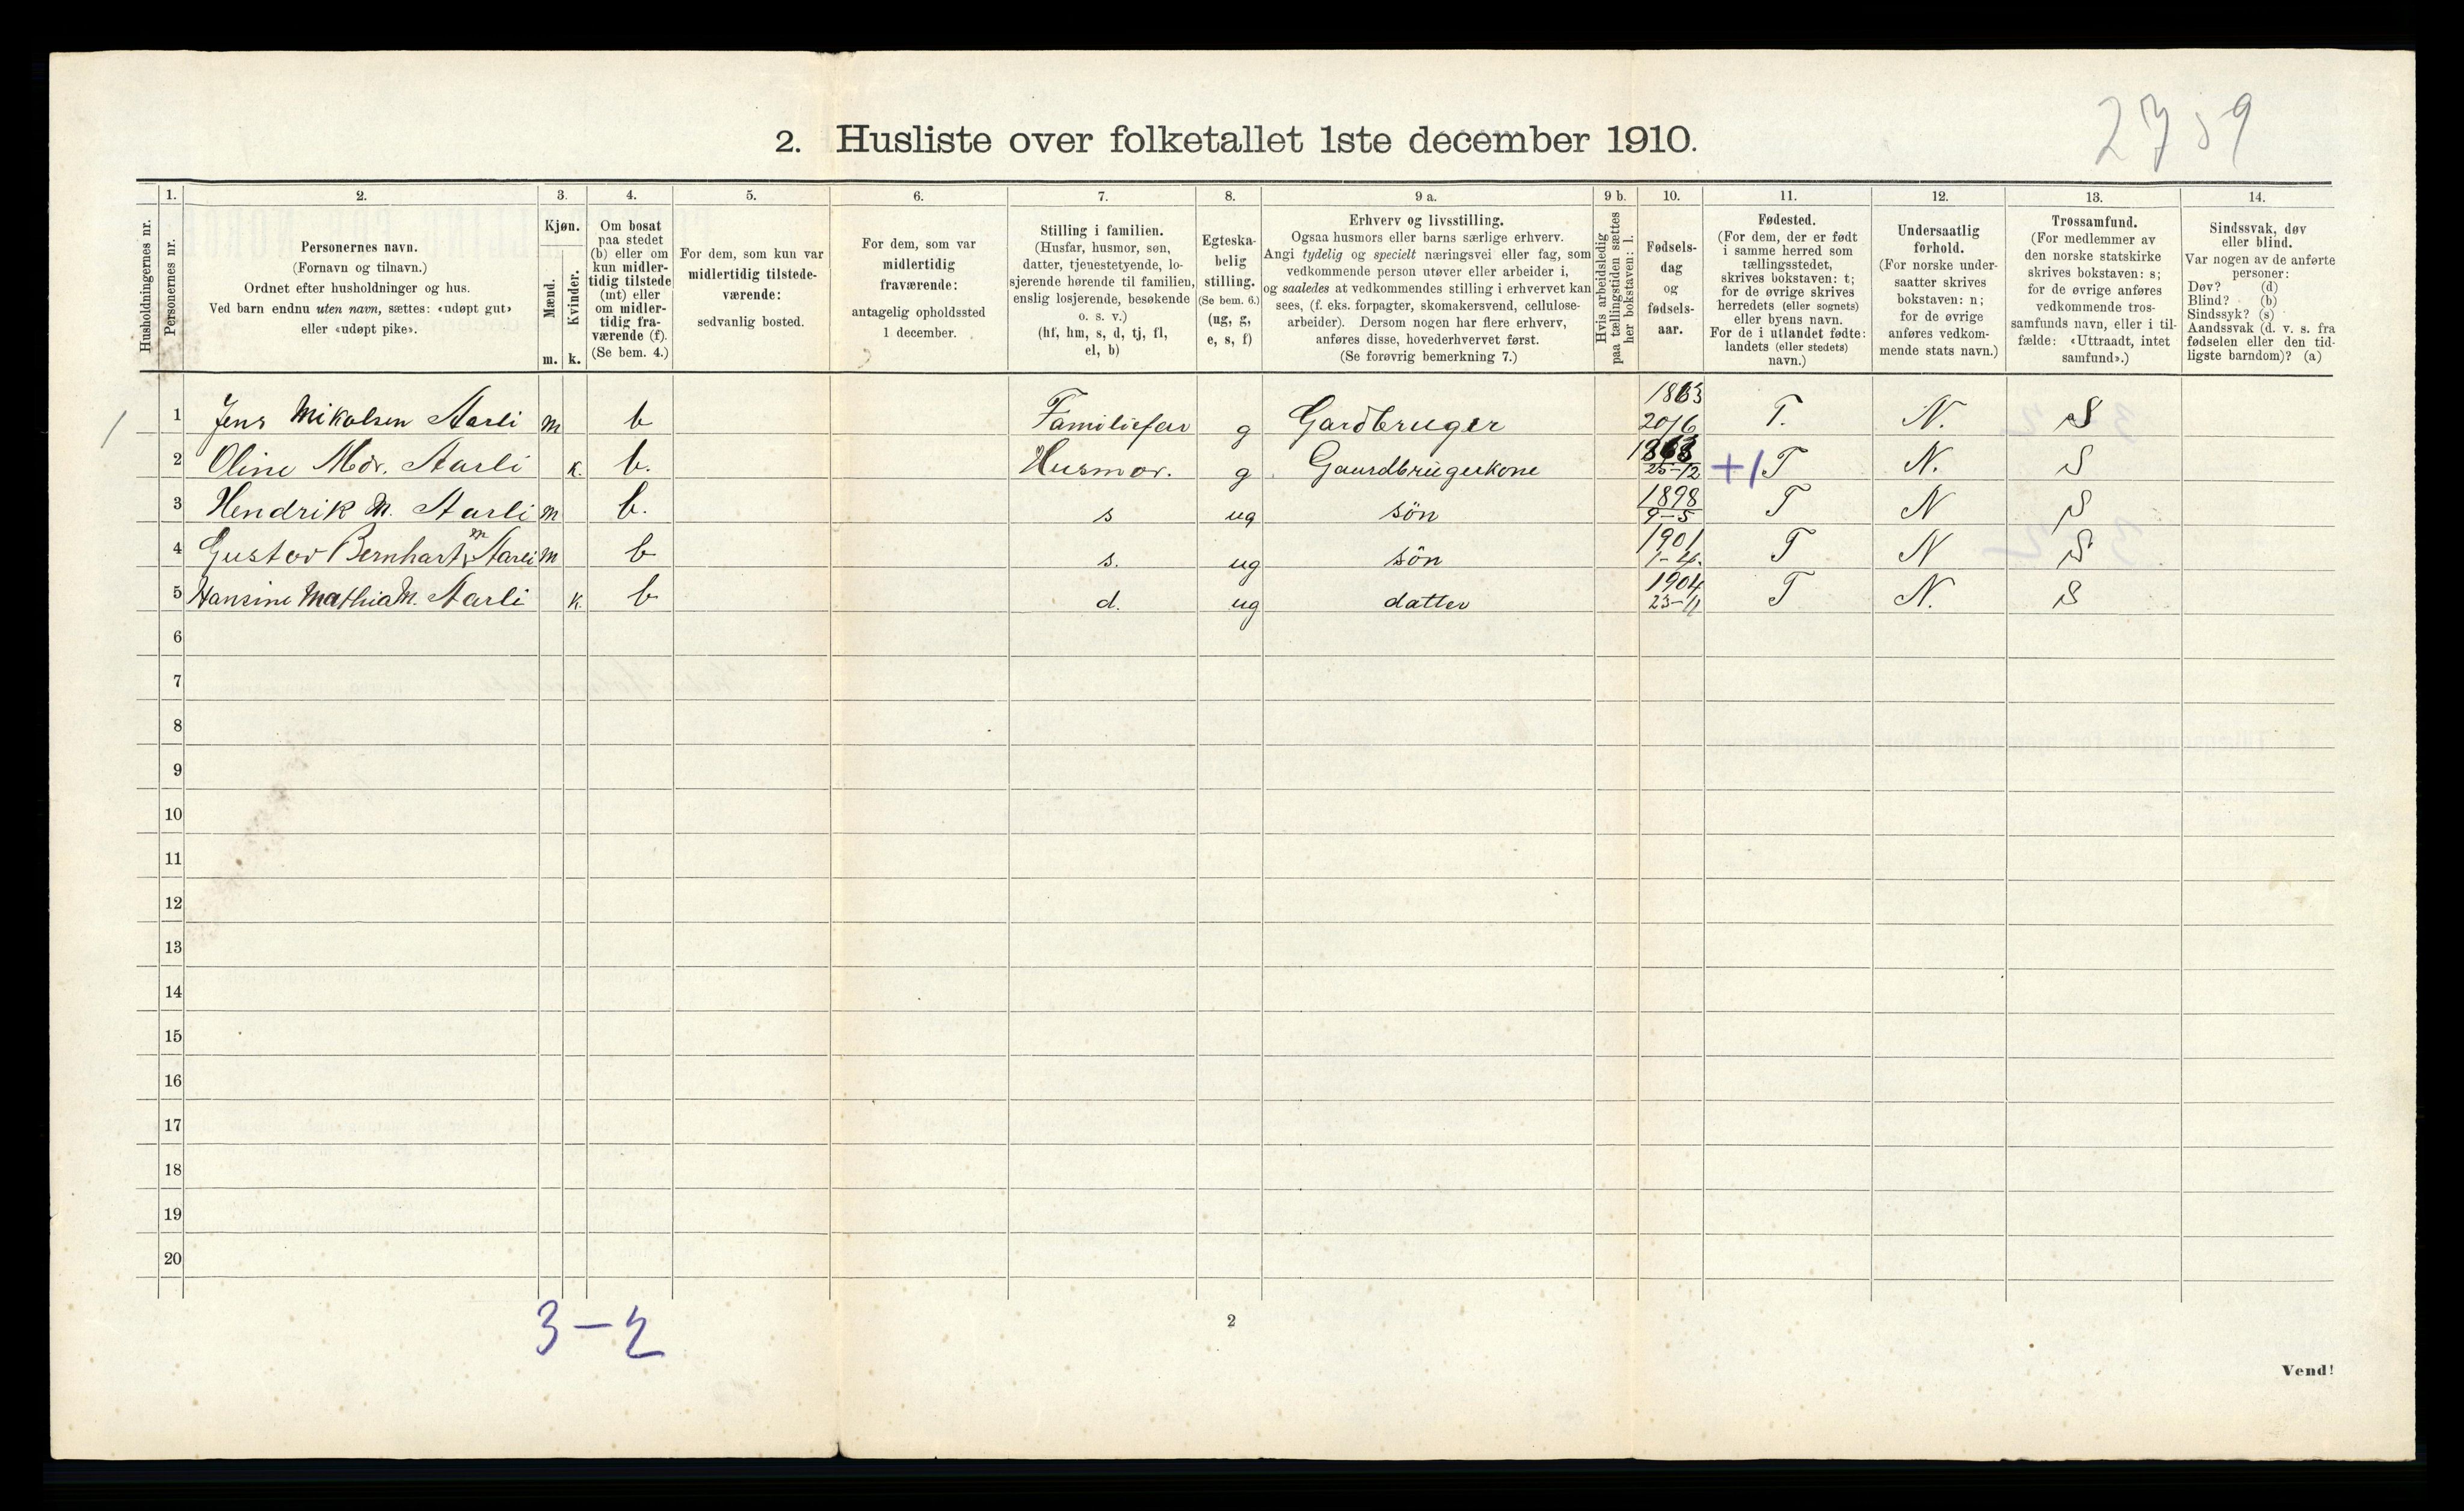 2759
2. Husliste over folketallet 1ste december 1910.
Husholdningernes nr.
1.
Personernes nr.
2.
Personernes navn.
(Fornavn og tilnavn.)
Ordnet efter husholdninger og hus.
Ved barn endnu uten navn, sættes: «udøpt gut»
eller «udøpt pike».
3.
Kjøn.
Mænd.
Kvinder.
m. k.
4.
Om bosat
paa stedet
(b) eller om
kun midler-
tidig tilstede
(mt) eller
om midler-
tidig fra-
værende (f).
(Se bem. 4.)
5.
For dem, som kun var
midlertidig tilstede-
værende:
sedvanlig bosted.
6.
For dem, som var
midlertidig
fraværende:
antagelig opholdssted
1 december.
7.
Stilling i familien.
(Husfar, husmor, søn,
datter, tjenestetyende, lo-
sjerende hørende til familien,
enslig losjerende, besøkende
o. s. v.)
(hf, hm, s, d, tj, fl,
el, b)
8.
Egteska-
belig
stilling.
(Se bem. 6.)
(ug, g,
e, s, f)
9 a.
Erhverv og livsstilling.
Ogsaa husmors eller barns særlige erhverv.
Angi tydelig og specielt næringsvei eller fag, som
vedkommende person utøver eller arbeider i,
og saaledes at vedkommendes stilling i erhvervet kan
sees, (f. eks. forpagter, skomakersvend, cellulose-
arbeider). Dersom nogen har flere erhverv,
anføres disse, hovederhvervet først.
(Se forøvrig bemerkning 7.)
9 b.
Hvis arbeidsledig
paa tællingstiden sættes
her bokstaven: l.
10.
Fødsels-
dag
og
fødsels-
aar.
11.
Fødested.
(For dem, der er født
i samme herred som
tællingsstedet,
skrives bokstaven: t;
for de øvrige skrives
herredets (eller sognets)
eller byens navn.
For de i utlandet fødte:
landets (eller stedets)
navn.)
12.
Undersaatlig
forhold.
(For norske under-
saatter skrives
bokstaven: n;
for de øvrige
anføres vedkom-
mende stats navn.)
13.
Trossamfund.
(For medlemmer av
den norske statskirke
skrives bokstaven: s;
for de øvrige anføres
vedkommende tros-
samfunds navn, eller i til-
fælde: «Uttraadt, intet
samfund».)
14.
Sindssvak, døv
eller blind.
Var nogen av de anførte
personer:
Døv? (d)
Blind? (b)
Sindssyk? (s)
Aandssvak (d. v. s. fra
fødselen eller den tid-
ligste barndom)? (a)
1 1 Jens Mikalsen Aarli m b Familiefar g Gardbruger 1863 20/6 T. N. S
2 Oline Mdr. Aarli k. b. Husmor. g Gaurdbrugerkone 1868 25-12 +1 T N. S
3 Hendrik M. Aarli m b. s ug sön 1898 9-5 T N S
4 Gustav Bernhart M Aarli m b s. ug sön 1901 1-4. T N S
5 Hansine Mathia M. Aarli k. b d. ug datter 1904 23-11 T N. S
6
7
8
9
10
11
12
13
14
15
16
17
18
19
20
3-2
2
Vend!